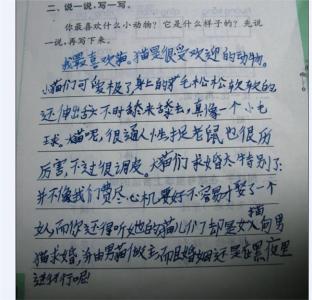 二、说一说,写一写。
你最喜欢什么小动物?它是什么样子的?先说
一说,再写下来。
我最喜欢猫。猫是很受欢迎的动物。
小猫们可爱极了身上的猫毛松松软软的
还伸出舌头不时舔来舔去,真像一个小毛
球。大猫呢,很通人性捉老鼠也很厉
厉害,不过很调皮。大猫们求婚太特别了:
并不像我们费尽心机要好不容易才娶一个
女人,而你还得听她的猫儿们却是女猫向男
猫求婚,并由男猫做主,而且婚姻还是在黑夜里
进行呢!